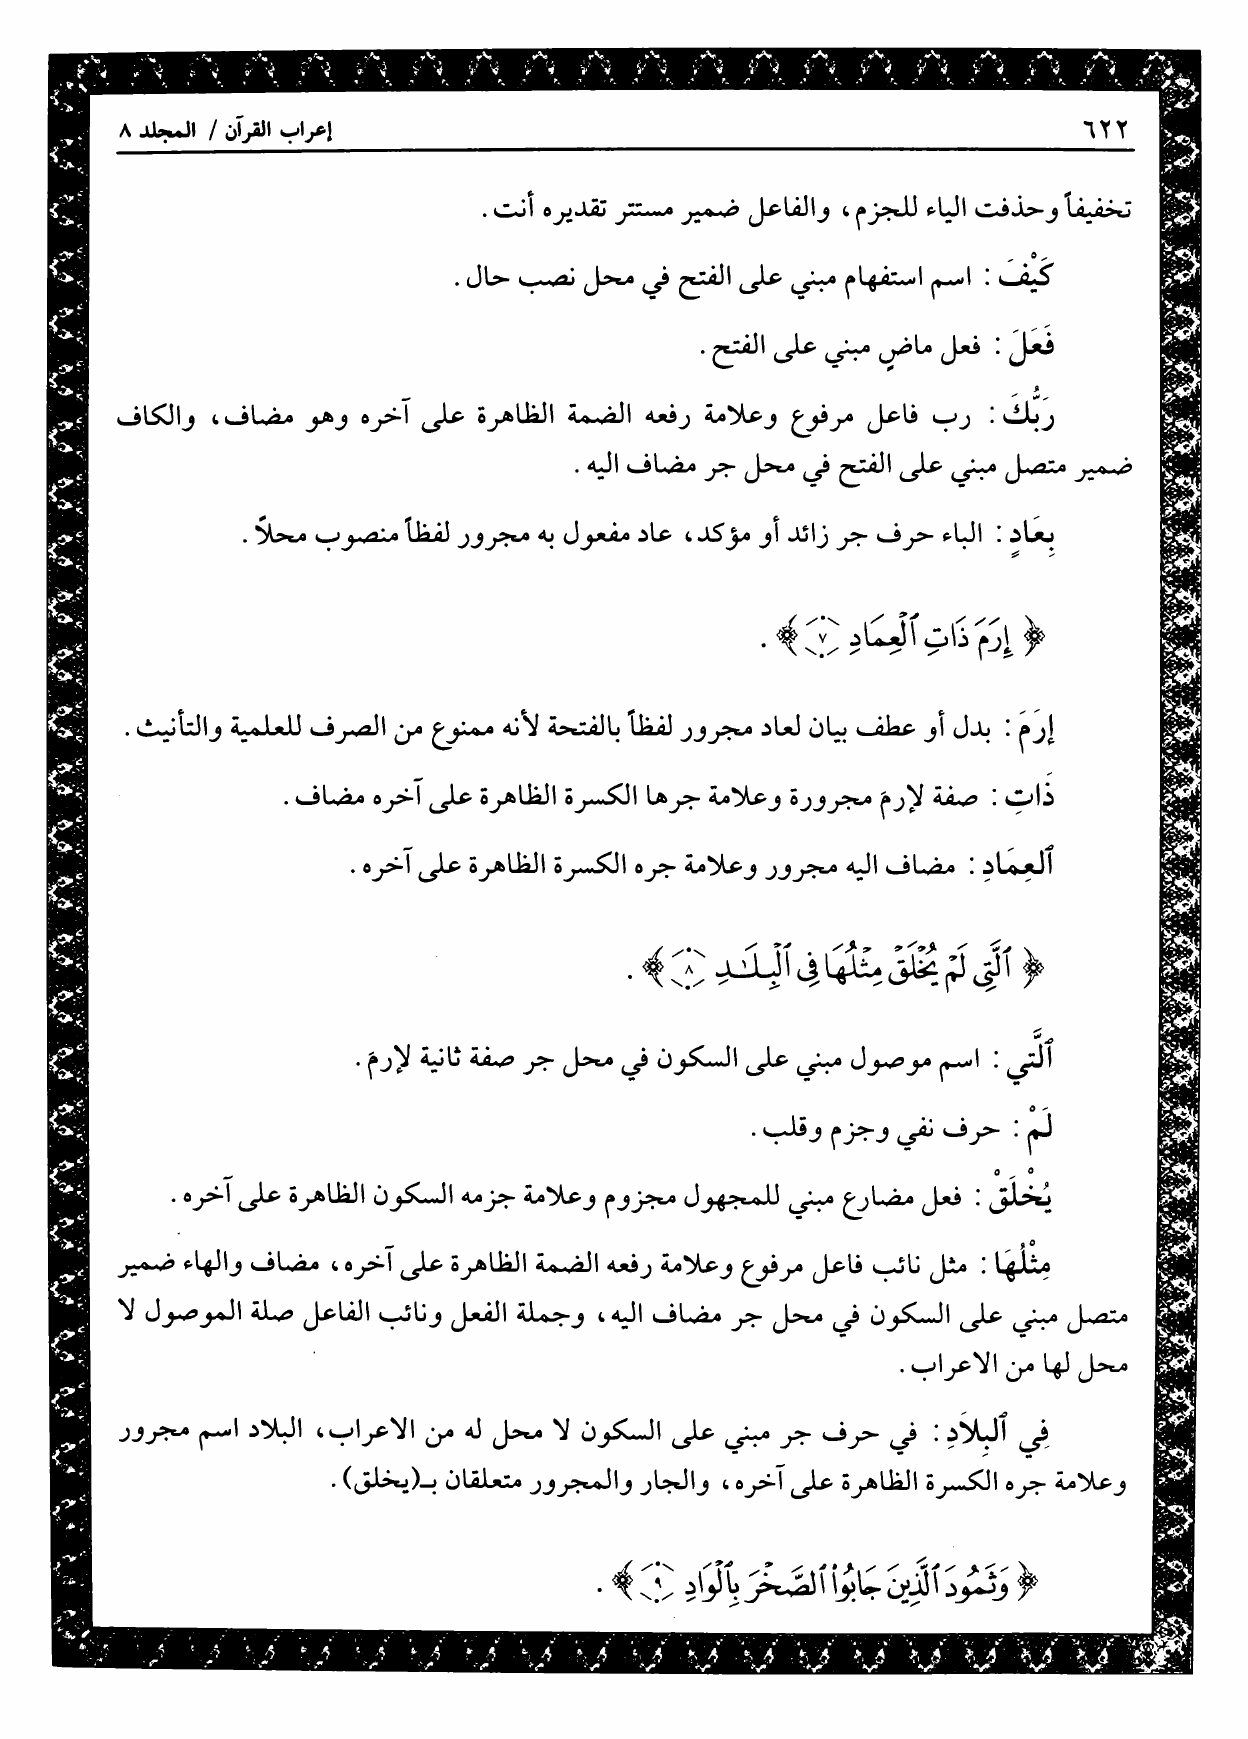 ٦٢٢
إعراب القرآن / المجلد ٨
تخفيفاً وحذفت الياء للجزم، والفاعل ضمير مستتر تقديره أنت.
كَيْفَ : اسم استفهام مبني على الفتح في محل نصب حال.
فَعَلَ : فعل ماضٍ مبني على الفتح.
رَبُّكَ : رب فاعل مرفوع وعلامة رفعه الضمة الظاهرة على آخره وهو مضاف، والكاف
ضمير متصل مبني على الفتح في محل جر مضاف اليه.
بِعَادٍ : الباء حرف جر زائد أو مؤكد، عاد مفعول به مجرور لفظاً منصوب محلاً.
﴿ إِرَمَ ذَاتِ ٱلْعِمَادِ ٧ ﴾.
إرَمَ : بدل أو عطف بيان لعاد مجرور لفظاً بالفتحة لأنه ممنوع من الصرف للعلمية والتأنيث.
ذَاتِ : صفة لإرمَ مجرورة وعلامة جرها الكسرة الظاهرة على آخره مضاف.
ٱلعِمَادِ : مضاف اليه مجرور وعلامة جره الكسرة الظاهرة على آخره.
﴿ ٱلَّتِى لَمْ يُخْلَقْ مِثْلُهَا فِى ٱلْبِلَـٰدِ ٨ ﴾.
ٱلَّتي : اسم موصول مبني على السكون في محل جر صفة ثانية لإرمَ.
لَمْ : حرف نفي وجزم وقلب.
يُخْلَقْ : فعل مضارع مبني للمجهول مجزوم وعلامة جزمه السكون الظاهرة على آخره.
مِثْلُهَا : مثل نائب فاعل مرفوع وعلامة رفعه الضمة الظاهرة على آخره، مضاف والهاء ضمير
متصل مبني على السكون في محل جر مضاف اليه، وجملة الفعل ونائب الفاعل صلة الموصول لا
محل لها من الاعراب.
فِي ٱلبِلاَدِ : في حرف جر مبني على السكون لا محل له من الاعراب، البلاد اسم مجرور
وعلامة جره الكسرة الظاهرة على آخره، والجار والمجرور متعلقان بـ(يخلق).
﴿ وَثَمُودَ ٱلَّذِينَ جَابُوا۟ ٱلصَّخْرَ بِٱلْوَادِ ٩ ﴾.